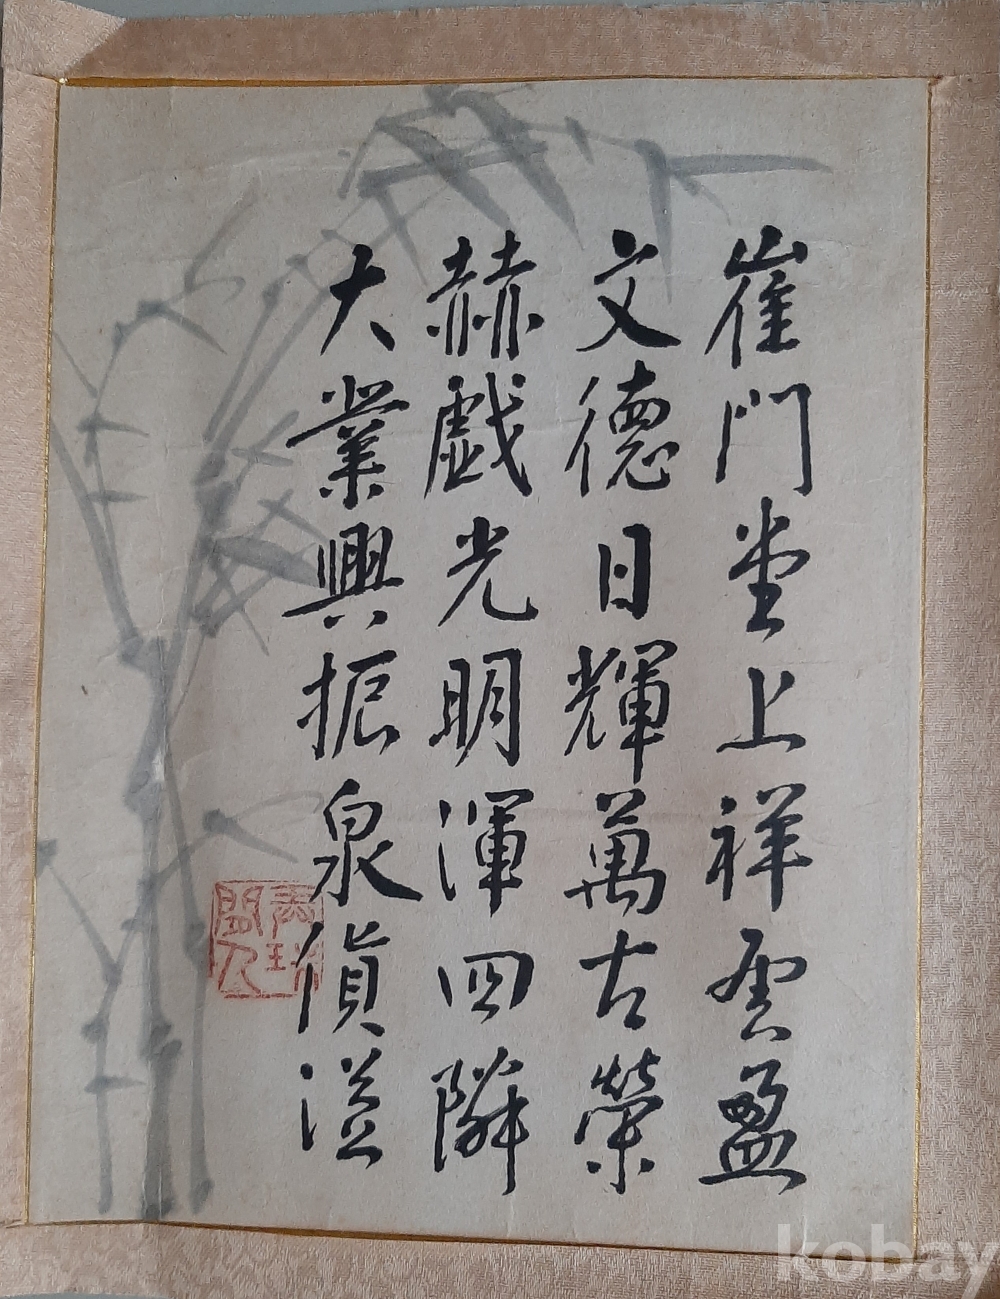 崔門堂上祥雲盈
文德日輝萬古榮
赫戯光明渾四隣
大業興振泉偵溢
kobay